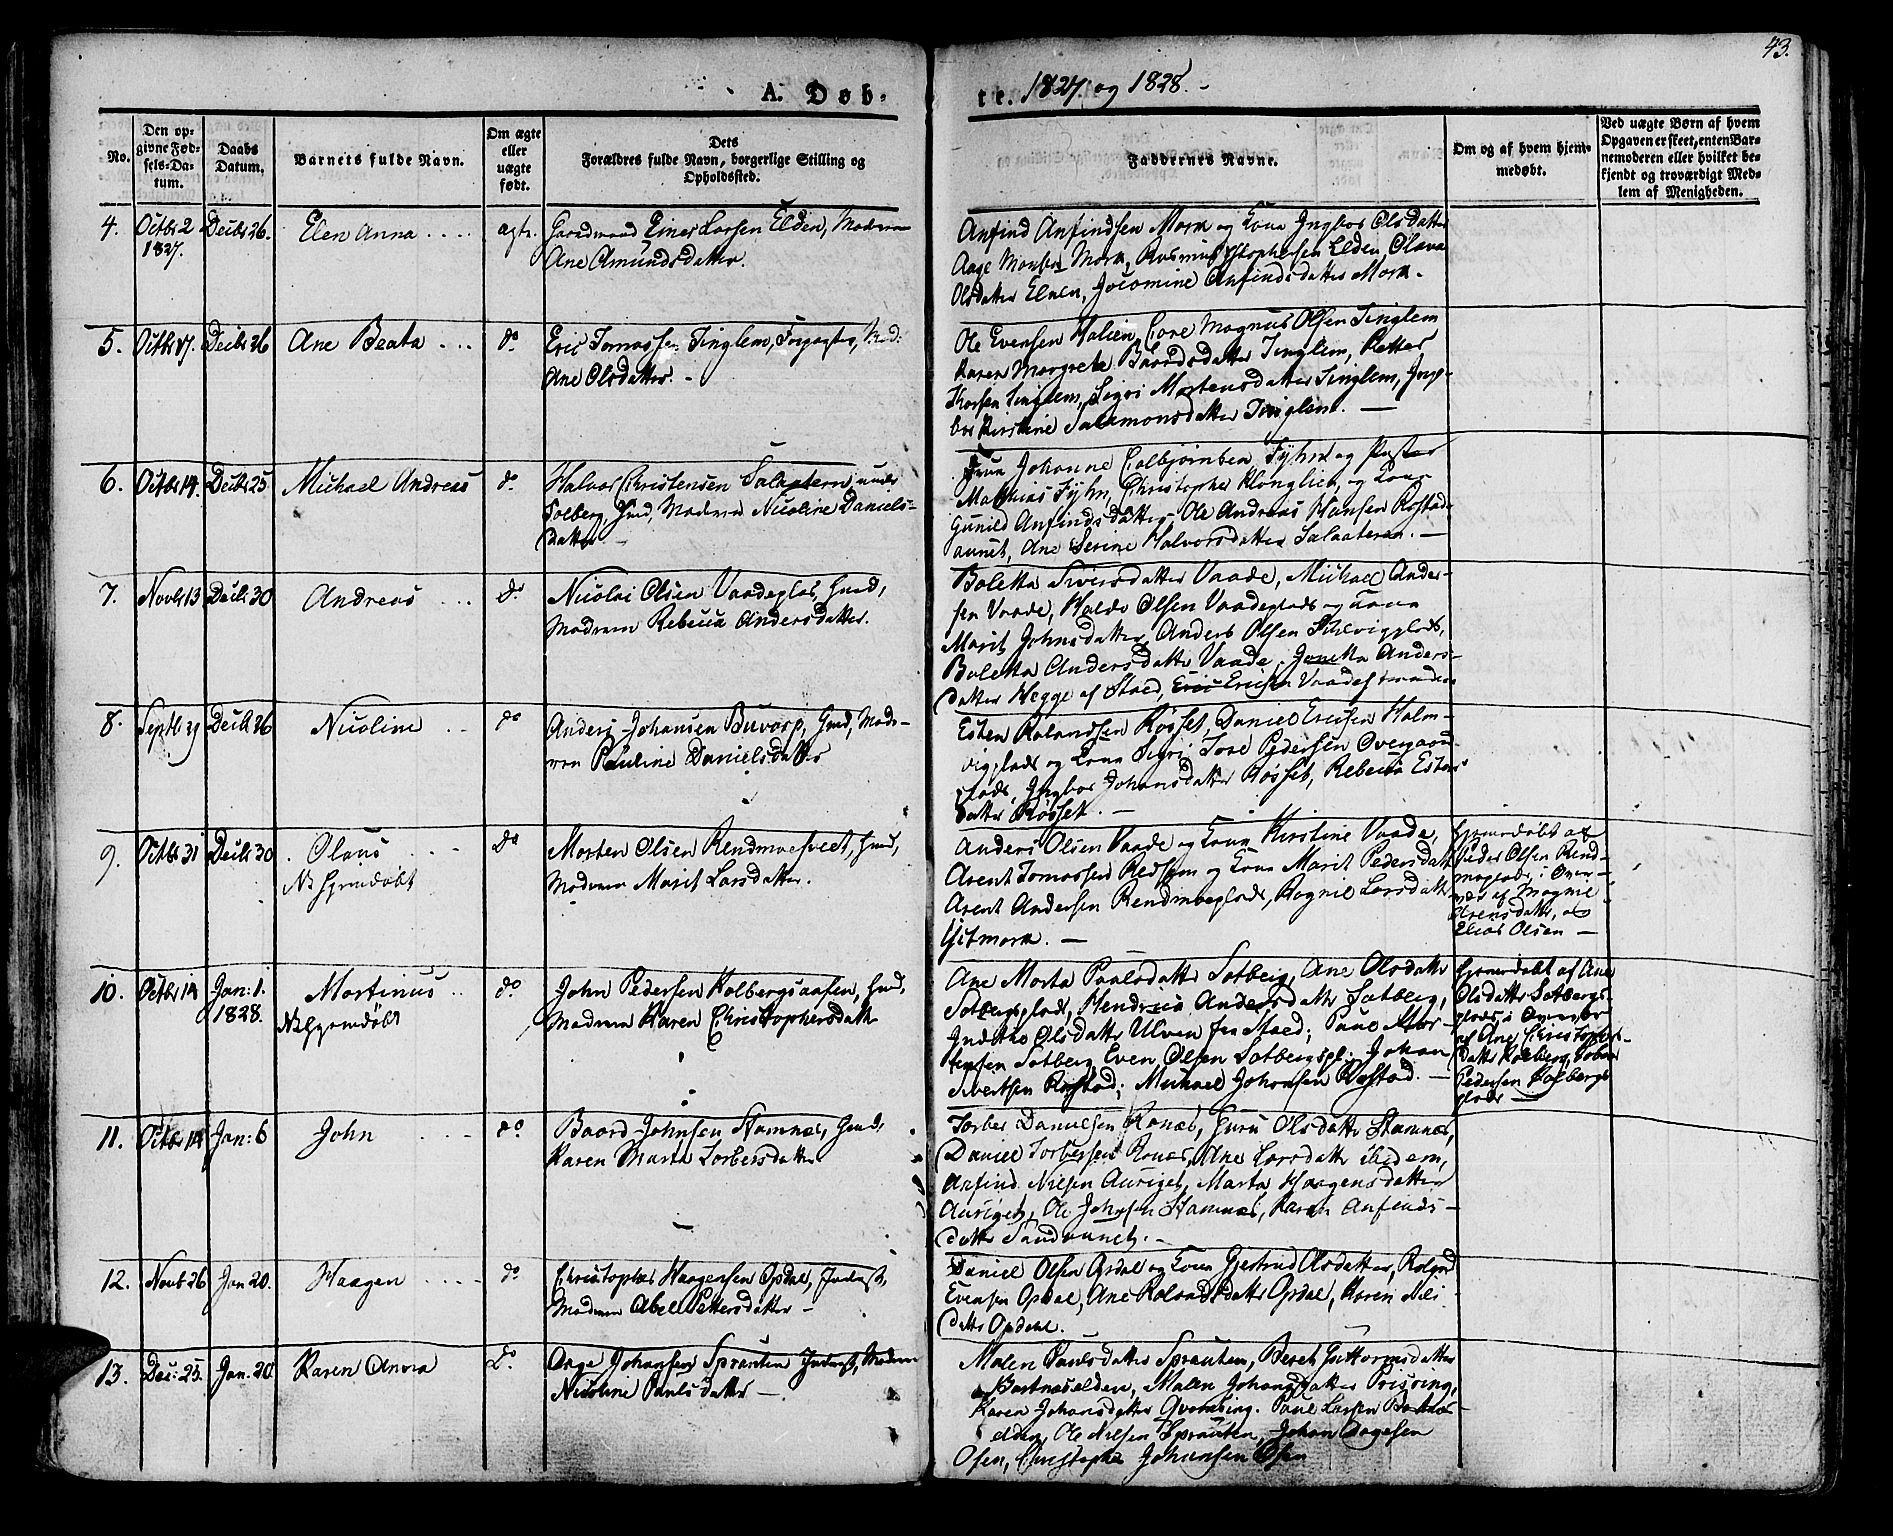 43.
A. Døb-
te. 1827. og 1828.-
No.
Den op-
givne Fød-
sels-Da-
tum.
Daabs
Datum.
Barnets fulde Navn.
Om ægte
eller
uægte
født.
Dets
Forældres fulde Navn, borgerlige Stilling og
Opholdssted.
Faddernes Navne.
Om og af hvem hjem-
medøbt.
Ved uægte Børn af hvem
Opgaven er skeet, enten Bar-
nemoderen eller hvilket be-
kjendt og troværdigt Med-
lem af Menigheden.
4. Octbr 2 Decbr 26. Elen Anna .... ægte. Gaardmand Einer Larsen Elden, Moderen
1827.
Ane Amundsdatter.
Anfind Anfindsen Mork og Kona Ingbor Olsdatter
Aage Monsen Mork, Rasmus Elden, Olava
Olsdatter Elden, Jocomine Anfindsdatter Mork.
5. Octbr 17. Decbr 26 Ane Beata ... do Eric Tomassen Tinglem, Mod:
Ane Olsdatter. -
Ole Evensen Halien, Core Magnus Olsen Tinglem
Karen Margrete Baardsdatter Tinglem, Petter
Tinglem, Sigri Mortensdatter Tinglem, Ing-
bor Kirstine Salamonsdatter Tinglem. —
6. Octbr 14. Decbr 25. Michael Andreas do Halvor Christensen Salaateren under
Solberg, Hmd, Moderen Nicoline Daniels-
datter -
Frue Johanne Colbjørnsen Fyhn og Pastor
Mathias Fyhn, Christopher Klinglien, og Kona
Gunild Anfindsdatter - Ole Andreas Hansen Rostad-
aunet, Ane Serine Halvorsdatter Salaateren. —
7. Novbr 13 Decbr 30 Andreas ... do Nicolai Olsen Vaadeplds, Hmd,
Moderen Rebecca Andersdatter.
Boletta Siversdatter Vaade, Michael Ander-
sen Vaade, Haldo Olsen Vaadeplads og Kona
Marit Johnsdatter, Anders Olsen
Boletta Andersdatter Vaade, Jonetta Anders-
datter Hegge af Stoed, Eric Ericsen Vaadestranden
8. Septbr 29 Decbr 26 Nicoline .. do Anders Johansen Buvarp, Hmd, Mode-
ren Pauline Danielsdatter
Esten Rolandsen Røsset, Daniel Ericsen Holm-
vigplads og Kona Sigri, Tore Pedersen Overgaard-
plads, Ingbor Johansdatter Røsset, Rebecca Estens-
datter Røsset. —
9. Octbr 31 Decbr 30 . Olaus ... do Morten Olsen Rendmoesveet, Hmd,
NB Hjemdøbt
Moderen Marit Larsdatter.
Anders Olsen Vaade og Kona Kirstine Vaade,
Arent Tomassen og Kona Marit Pedersdatter
Arent Andersen Rendmoeplads, Ragnil Larsdatter
Hitmork. —
Hjemdøbt af
Peder Olsen Rend-
moplads i Over-
vær af Magnil
Arensdatter, og
Elias Olsen —
10. Octbr 14 Jan: 1. Mortinus .. do John Pedersen Kolbergsaasen, Hmd,
1828. NB Hjemdøbt
Moderen Karen Christophersdatter
Ane Marta Paulsdatter Solberg, Ane Olsdatter
Solbergplads, Hendrica Andersdatter Solberg,
Olsdatter Ulven fra Stoed; Paul Mor-
tensen Solberg, Even Olsen Solbergspl: Johan
Sivertsen Røstad; Michael Johansen Røstad. —
Hjemdøbt af Ane
Olsdatter Solbergs-
plads i Overvær
af Ane Christophers-
datter Kolberg, Tobias
Pedersen Solbergs
plads —
11. Octbr 14 Jan: 6 John ... do Baard Johnsen Stamnes, Hmd,
Karen Maria Torbersdatter
Torber Danielsen Kones, Guru Olsdatter Stamnes,
Daniel Torbersen Rones, Ane Larsdatter ibidem,
Anfind Nilsen Auriget, Marta Haagensdatter
Auriget, Ole Johnsen Stamnes, Karen Anfinds-
datter Sandaunet. -
12. Novb 26 Jan 20. Haagen .... do Christopher Haagensen Opdal, Inderst,
Moderen Abel Pettersdatter -
Daniel Olsen Opdal og Kona Gjertrud Olsdatter, Roland
Evensen Opdal, Ane Rolandsdatter Opdal, Karen Nils-
datter Opdal.
13. Dec: 25. Jan. 20 Karen Anna Do Aage Johansen Sprauten Inderst, Moderen
Nicoline Paulsdatter —
Malen Paulsdatter Sprauten, Beret Guttormsdatter
Bartnæselden, Malen Johansdatter
Karen Johansdatter Paul Larsen Bartnæs-
elden, Ole Nilsen Sprauten, Johan Aagesen
Osen, Christopher Johansen Osen